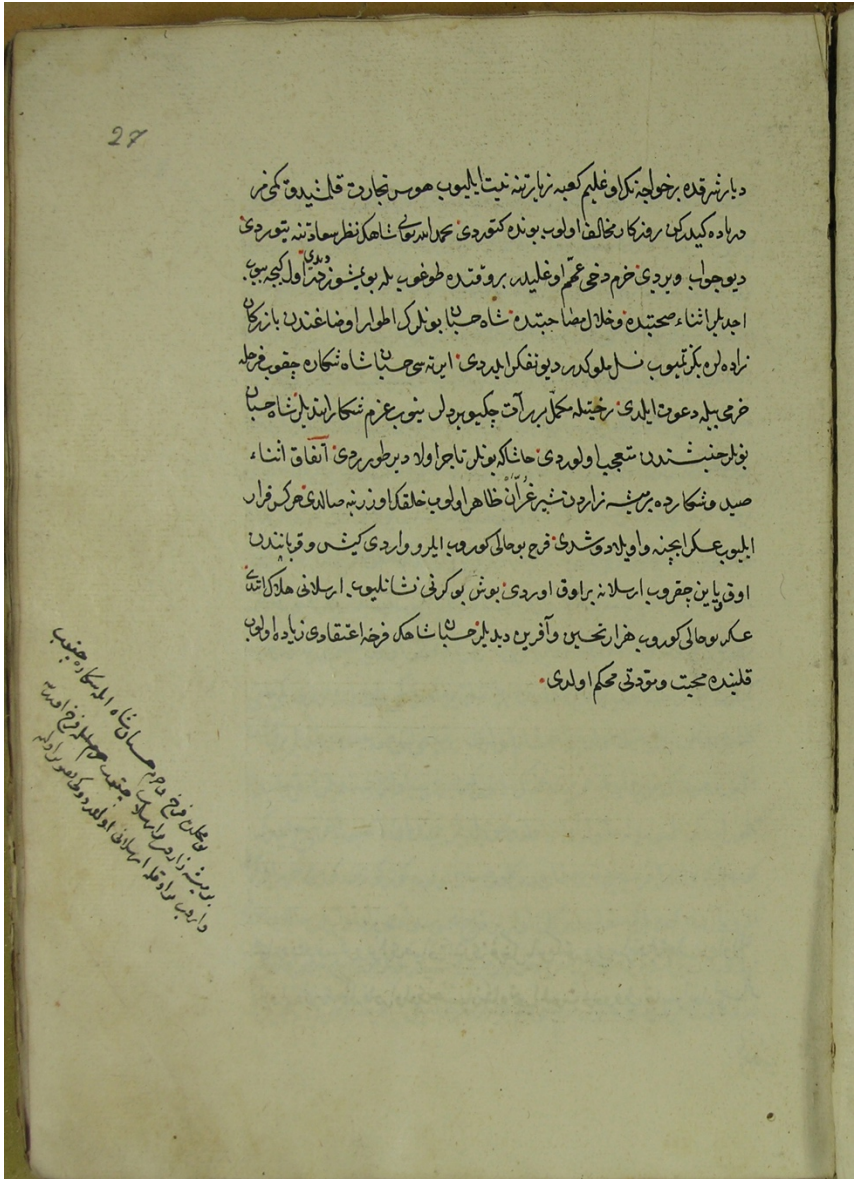 27
ديار شرقده بر خواجه نك اوغليم كعبه زيارتنه نيت ايليوب هوس تجارت قلمشيدق كمى مز
درياده كيدركن روزكار مخالف اولوب بونده كتوردى بحمد الله تعالى شاهك نظر سعادتنه يتوردى
ديو جواب ويردى خرم دخى عمّم اوغليدر بر وقتده طوغوب بله بويمشوزدر ديدى اول كيجه ييوب
ايچديلر اثناء صحبتده و خلال مصاحبتده شاه حسبان بونلرك اطوار و اوضاعندن بازركان
زاده لره بكزتميوب نسل ملوكدر ديو تفكر ايلردى ايرته سى حسبان شاه شكاره چقوب فرخله
خرمى بيله دعوت ايلدى رختيله مكمل برر آت چكيويرديلر بينوب عزم شكار ايتديلر شاه حسبان
بونلر جنبشندن متعجب اولوردى حاشا كه بونلر تاجر اولا دير طورردى اتفاق اثناء
صيد و شكارده بر بيشه زاردن شير غرّان ظاهر اولوب خلقك اوزرينه صالدى هركس فرار
ايليوب عسكر ايچنه واويلا دوشدى فرخ بو حالى كوروب ايلرو واردى كيش و قرباندن
اوقى ياين چقروب ارسلانه بر اوق اوردى بوش بوكرنى نشانليوب ارسلانى هلاك ايتدى
عسكر بو حالى كوروب هزار تحسين و آفرين ديديلر حسبان شاهك فرخه اعتقادى زياده اولوب
قلبنده محبت و مودتى محكم اولدى
بو محلدن فرخ و خرم حسبان شاه ايله شكاره چقوب
بر بيشه زاردن ارسلان چقوب فرخ
واروب بر اوقله ارسلانى اولدردوكى تصوير اولنه